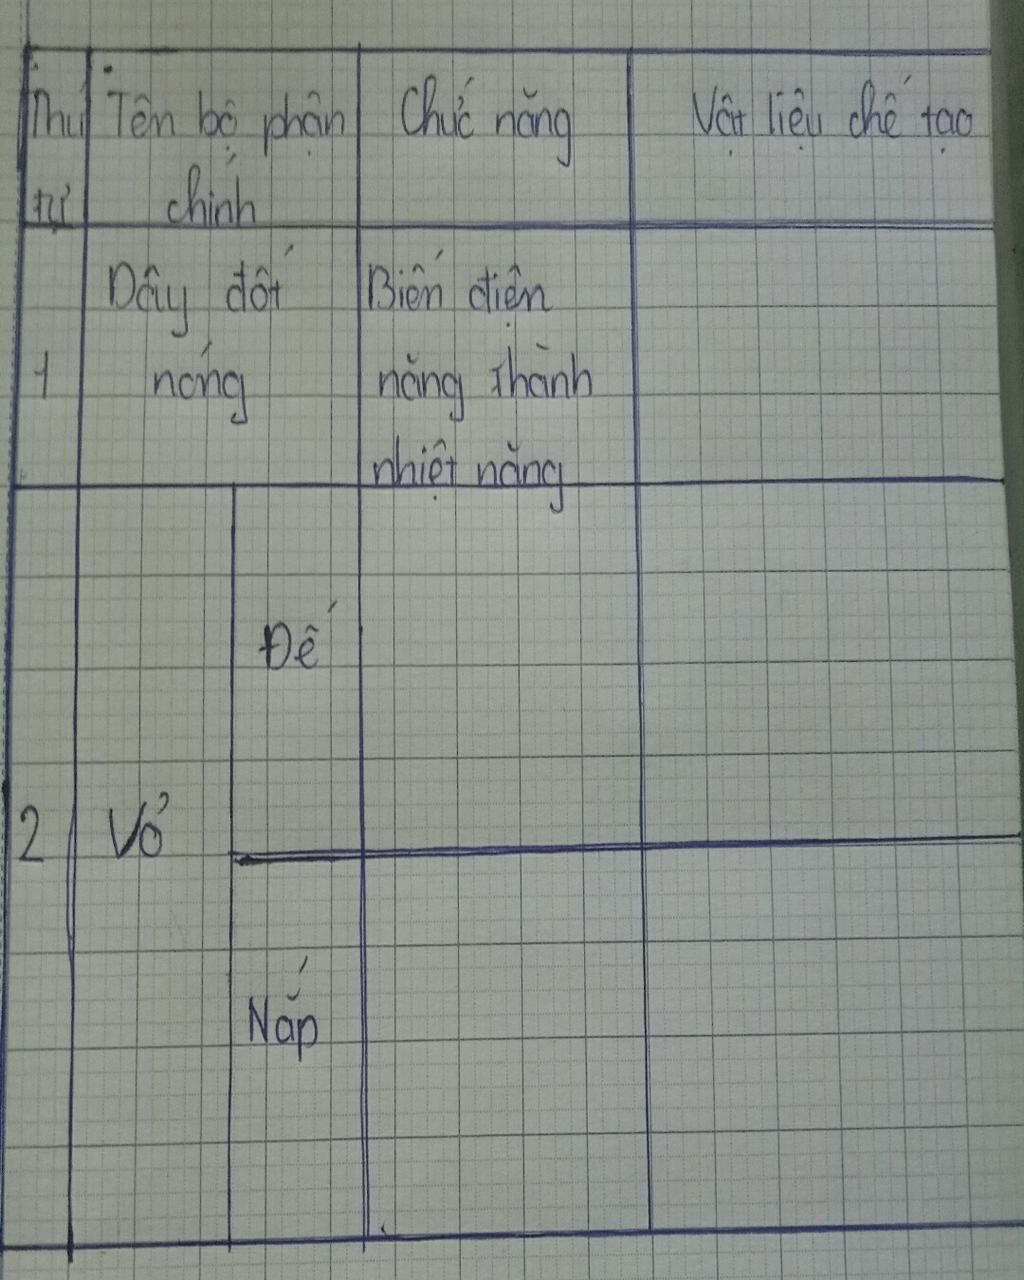 Thứ Tên bộ phận Chức năng Vật liệu chế tạo
tự chính
Dây đốt Biến điện
1 nóng năng thành
nhiệt năng
Đế
2 Vỏ
Nắp